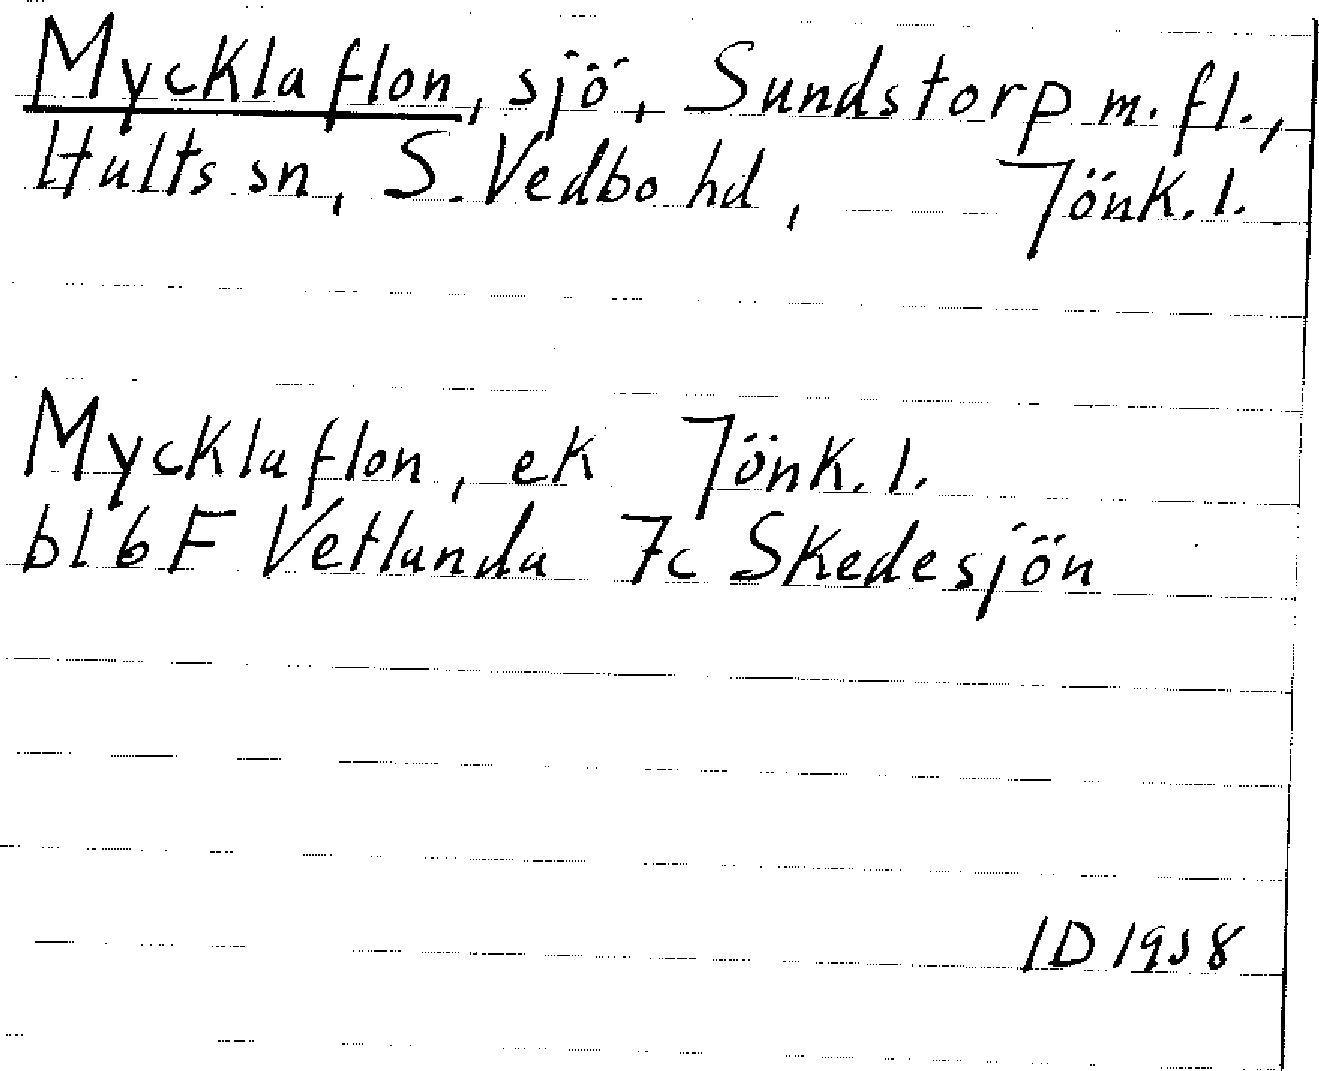 Mycklaflon, sjö, Sundstorp m.fl.,
Hults sn, S. Vedbo hd, Jönk. l.
Mycklaflon, ek Jönk. l.
bl 6F Vetlanda 7c Skedesjön
ID 1958